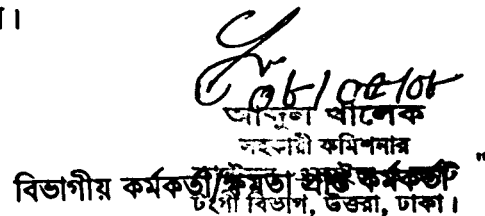 ।
০৮/০৫/০৮
আব্দুল খালেক
সহকারী কমিশনার
বিভাগীয় কর্মকর্তা/ক্ষমতা প্রাপ্ত কর্মকর্তা"
টংগী বিভাগ, উত্তরা, ঢাকা।